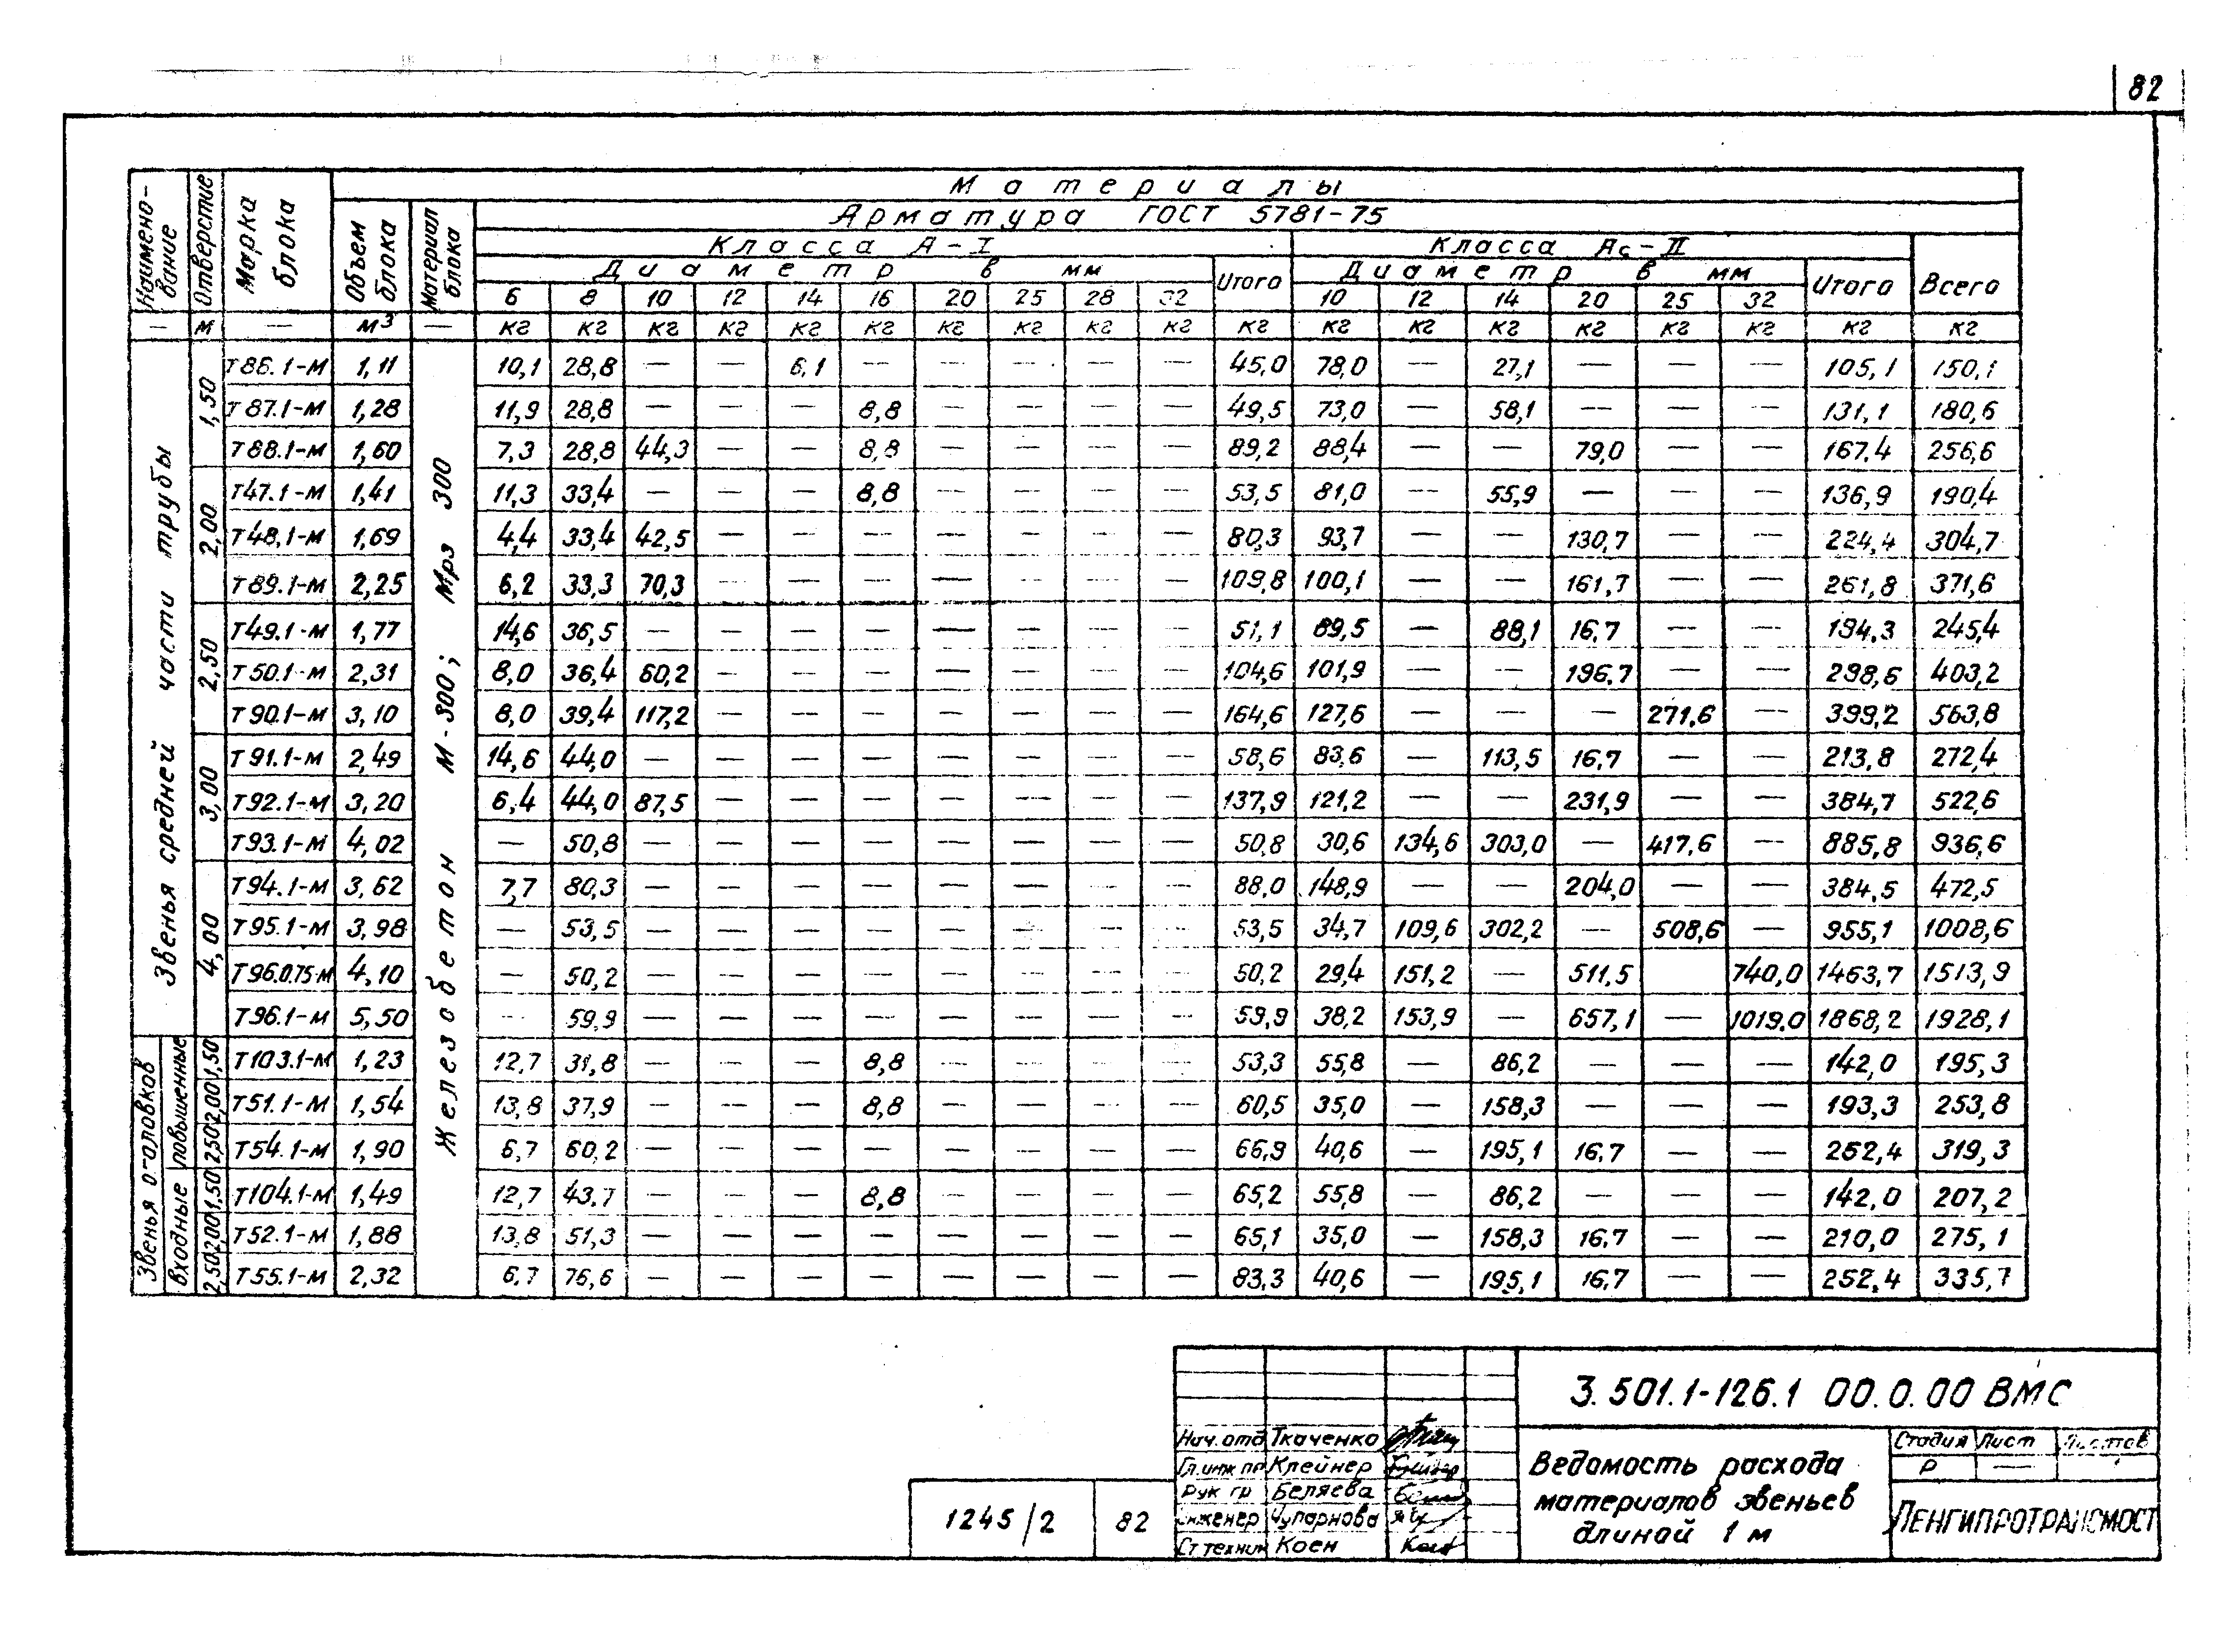 82
Наимено-вание Отверстие Марка блока Материалы
Объем блока Материал блока Арматура ГОСТ 5781-75
Класса А-I Класса Ас-II Всего
Диаметр в мм Итого Диаметр в мм Итого
6 8 10 12 14 16 20 25 28 32 10 12 14 20 25 32
— м — м3 — кг кг кг кг кг кг кг кг кг кг кг кг кг кг кг кг кг кг кг
Звенья средней части трубы
Железобетон М-300; Мрз 300
1,50
Т86.1-м 1,11 10,1 28,8 — — 6,1 — — — — — 45,0 78,0 — 27,1 — — — 105,1 150,1
Т87.1-м 1,28 11,9 28,8 — — — 8,8 — — — — 49,5 73,0 — 58,1 — — — 131,1 180,6
Т88.1-м 1,60 7,3 28,8 44,3 — — 8,8 — — — — 89,2 88,4 — — 79,0 — — 167,4 256,6
2,00
Т47.1-м 1,41 11,3 33,4 — — — 8,8 — — — — 53,5 81,0 — 55,9 — — — 136,9 190,4
Т48.1-м 1,69 4,4 33,4 42,5 — — — — — — — 80,3 93,7 — — 130,7 — — 224,4 304,7
Т89.1-м 2,25 6,2 33,3 70,3 — — — — — — — 109,8 100,1 — — 161,7 — — 261,8 371,6
2,50
Т49.1-м 1,77 14,6 36,5 — — — — — — — — 51,1 89,5 — 88,1 16,7 — — 194,3 245,4
Т50.1-м 2,31 8,0 36,4 60,2 — — — — — — — 104,6 101,9 — — 196,7 — — 298,6 403,2
Т90.1-м 3,10 8,0 39,4 117,2 — — — — — — — 164,6 127,6 — — — 271,6 — 399,2 563,8
3,00
Т91.1-м 2,49 14,6 44,0 — — — — — — — — 58,6 83,6 — 113,5 16,7 — — 213,8 272,4
Т92.1-м 3,20 6,4 44,0 87,5 — — — — — — — 137,9 121,2 — — 231,9 — — 384,7 522,6
Т93.1-м 4,02 — 50,8 — — — — — — — — 50,8 30,6 134,6 303,0 — 417,6 — 885,8 936,6
4,00
Т94.1-м 3,62 7,7 80,3 — — — — — — — — 88,0 148,9 — — 204,0 — — 384,5 472,5
Т95.1-м 3,98 — 53,5 — — — — — — — — 53,5 34,7 109,6 302,2 — 508,6 — 955,1 1008,6
Т96.0.75-м 4,10 — 50,2 — — — — — — — — 50,2 29,4 151,2 — 511,5 740,0 1463,7 1513,9
Т96.1-м 5,50 — 59,9 — — — — — — — — 59,9 38,2 153,9 — 657,1 — 1019,0 1868,2 1928,1
Звенья оголовков
входные повышенные
1,50 Т103.1-м 1,23 12,7 31,8 — — — 8,8 — — — — 53,3 55,8 — 86,2 — — — 142,0 195,3
2,00 Т51.1-м 1,54 13,8 37,9 — — — 8,8 — — — — 60,5 35,0 — 158,3 — — — 193,3 253,8
2,50 Т54.1-м 1,90 6,7 60,2 — — — — — — — — 66,9 40,6 — 195,1 16,7 — — 252,4 319,3
1,50 Т104.1-м 1,49 12,7 43,7 — — — 8,8 — — — — 65,2 55,8 — 86,2 — — — 142,0 207,2
2,00 Т52.1-м 1,88 13,8 51,3 — — — — — — — — 65,1 35,0 — 158,3 16,7 — — 210,0 275,1
2,50 Т55.1-м 2,32 6,7 76,6 — — — — — — — — 83,3 40,6 — 195,1 16,7 — — 252,4 335,7
3.501.1-126.1 00.0.00 ВМС
Нач.отд Ткаченко
Гл.инж пр Клейнер
Рук гр Беляева
Инженер Чупарнова
Ст.техник Коен
Ведомость расхода
материалов звеньев
длиной 1 м
Стадия Лист Листов
Р —
ЛЕНГИПРОТРАНСМОСТ
1245/2 82